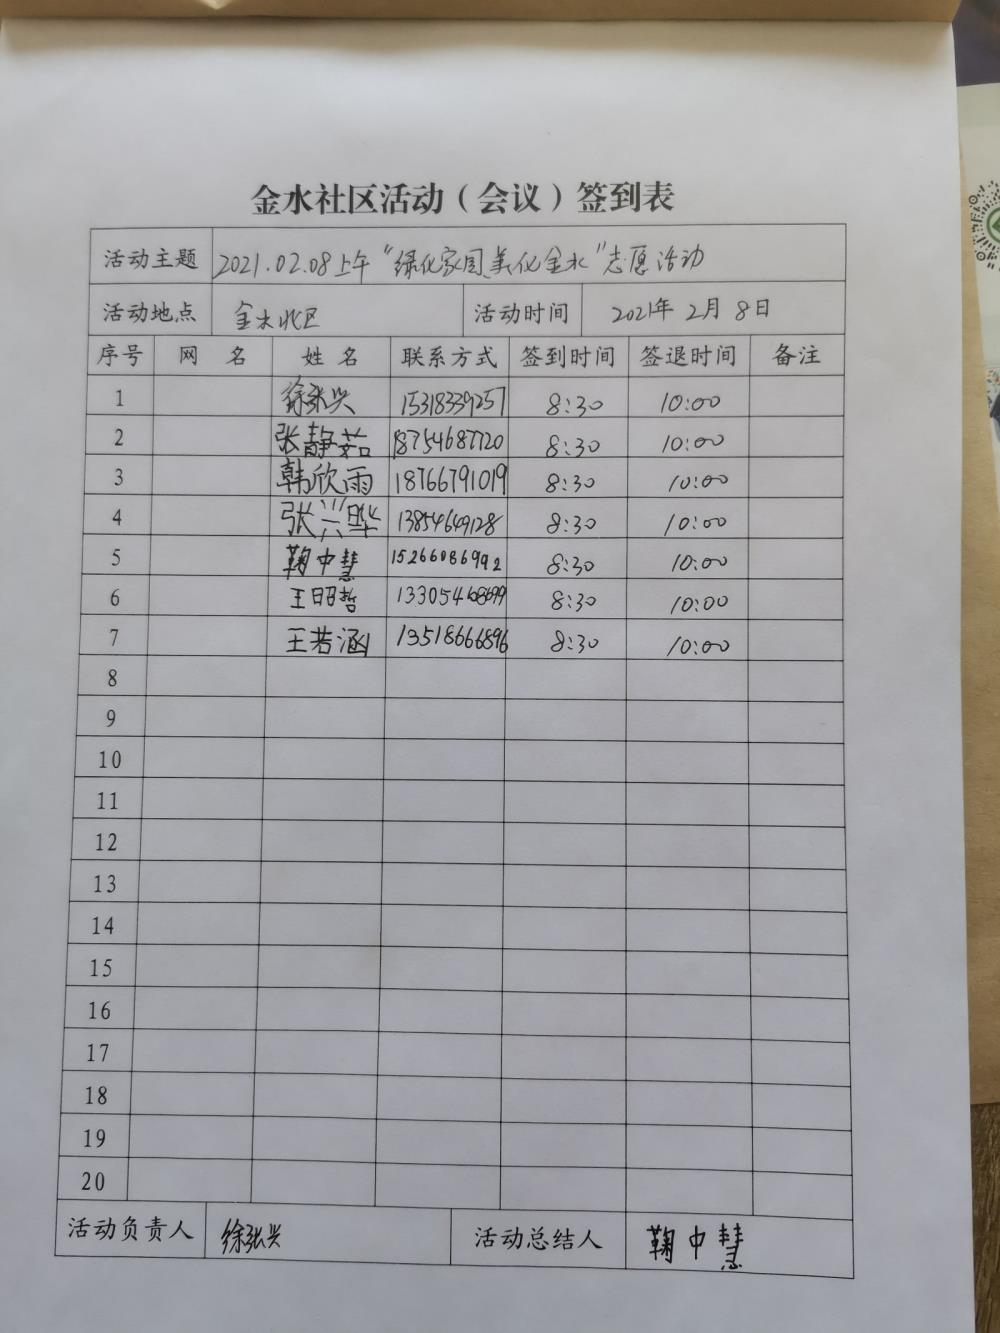 金水社区活动（会议）签到表
活动主题 2021.02.08上午“绿化家园美化金水”志愿活动
活动地点 金水北区 活动时间 2021年 2月 8日
序号 网 名 姓 名 联系方式 签到时间 签退时间 备注
1 徐张兴 15318339257 8:30 10:00
2 张静茹 18754687720 8:30 10:00
3 韩欣雨 18766791019 8:30 10:00
4 张兴晔 13854649128 8:30 10:00
5 鞠中慧 15266086992 8:30 10:00
6 王昭哲 13305468699 8:30 10:00
7 王若涵 13518666896 8:30 10:00
8
9
10
11
12
13
14
15
16
17
18
19
20
活动负责人 徐张兴 活动总结人 鞠中慧